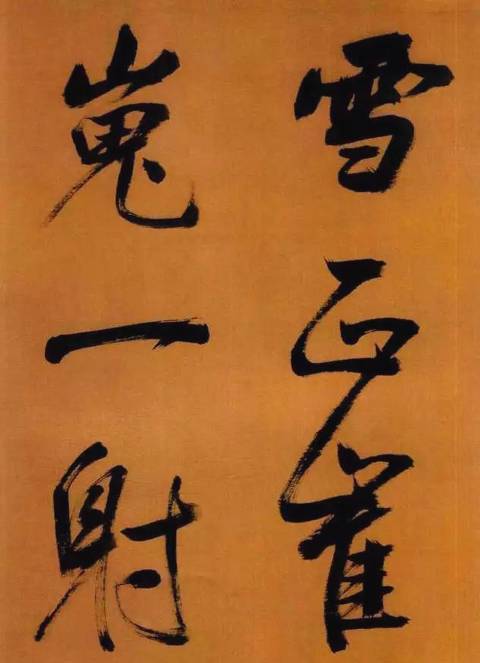 雪正崔
嵬一射